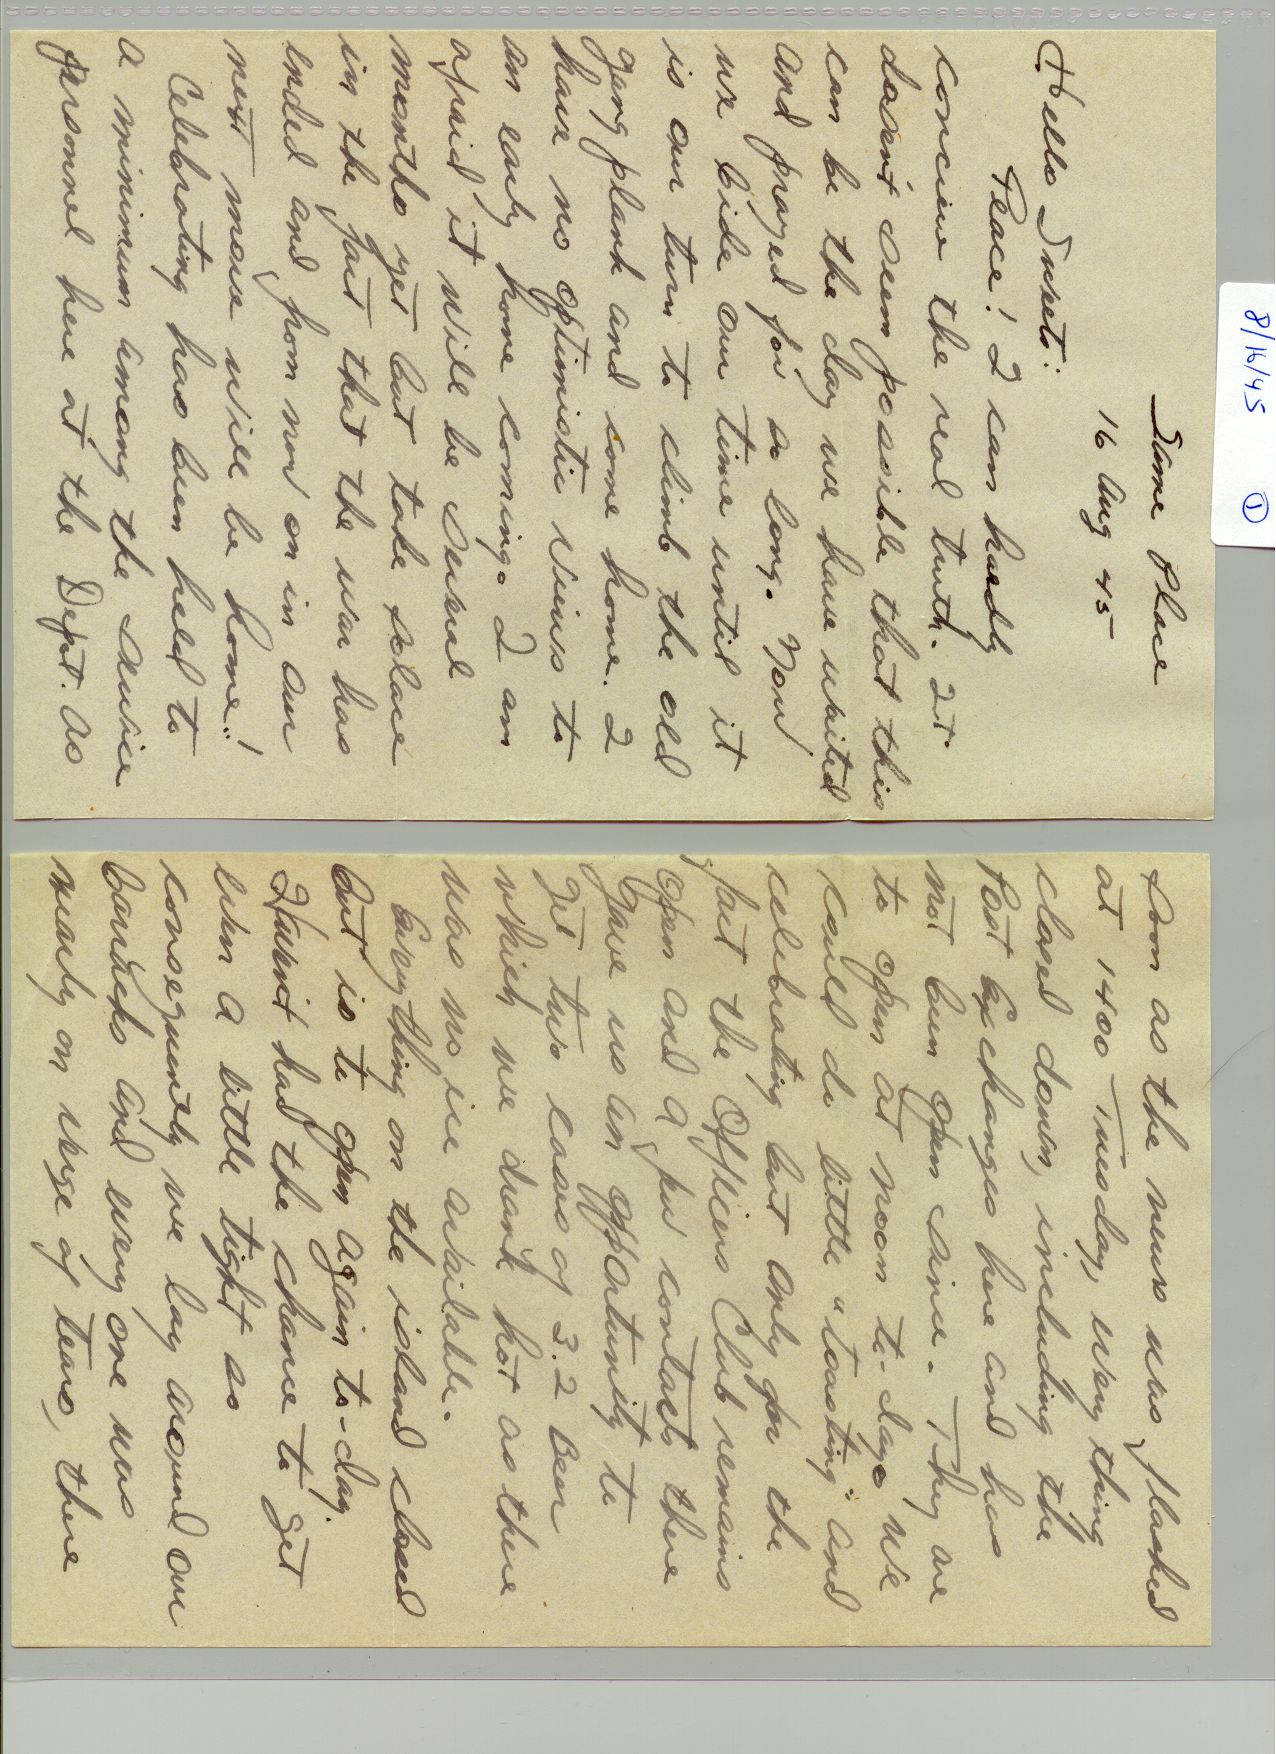 8/16/45 ①
Same Place
16 Aug 45
Hello Sweets:
Peace! I can hardly
conceive the real truth. It
doesn't seem possible that this
can be the day we have waited
and prayed for so long. Now
we bide our time until it
is our turn to climb the old
gang plank and come home. I
have no optimistic views to
an early home coming. I am
afraid it will be several
months yet but take solace
in the fact that the war has
ended and from now on in our
next move will be home!
Celebrating has been held to
a minimum among the service
personnel here at the Depot. As
soon as the news was flashed
at 1400 Tuesday, every thing
closed down, including the
Post Exchanges here and has
not been open since. They are
to open at noon to-day. We
could do little "toasting" and
celebrating but only for the
fact the Officers Club remains
open and a few contacts there
gave us an opportunity to
get two cases of 3.2 Beer
which we drank hot as there
was no ice available.
Everything on the island closed
but is to open again to-day.
Haven't had the chance to get
even a little tight so
consequently we lay around our
barracks and every one was
nearly on verge of tears, there